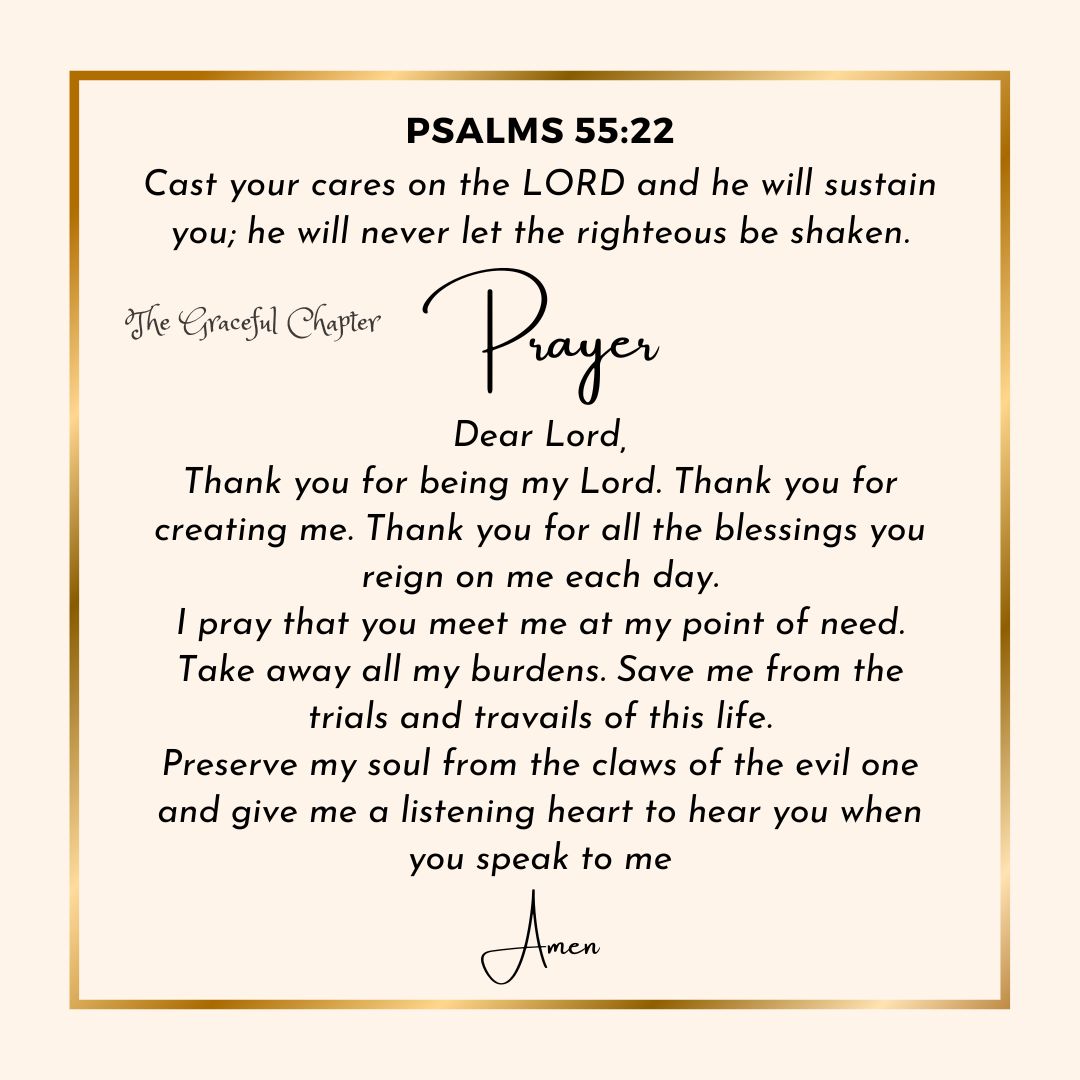 PSALMS 55:22
Cast your cares on the LORD and he will sustain
you; he will never let the righteous be shaken.
The Graceful Chapter
Prayer
Dear Lord,
Thank you for being my Lord. Thank you for
creating me. Thank you for all the blessings you
reign on me each day.
I pray that you meet me at my point of need.
Take away all my burdens. Save me from the
trials and travails of this life.
Preserve my soul from the claws of the evil one
and give me a listening heart to hear you when
you speak to me
Amen